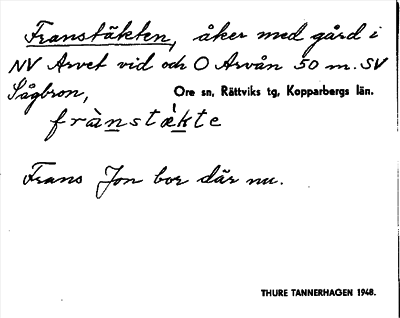 Franstäkten, åker med gård i
NV Arvet vid och O Arvån 50 m. SV
Sågbron, Ore sn, Rättviks tg, Kopparbergs län.
frànstäkte
Frans Jon bor där nu.
THURE TANNERHAGEN 1948.